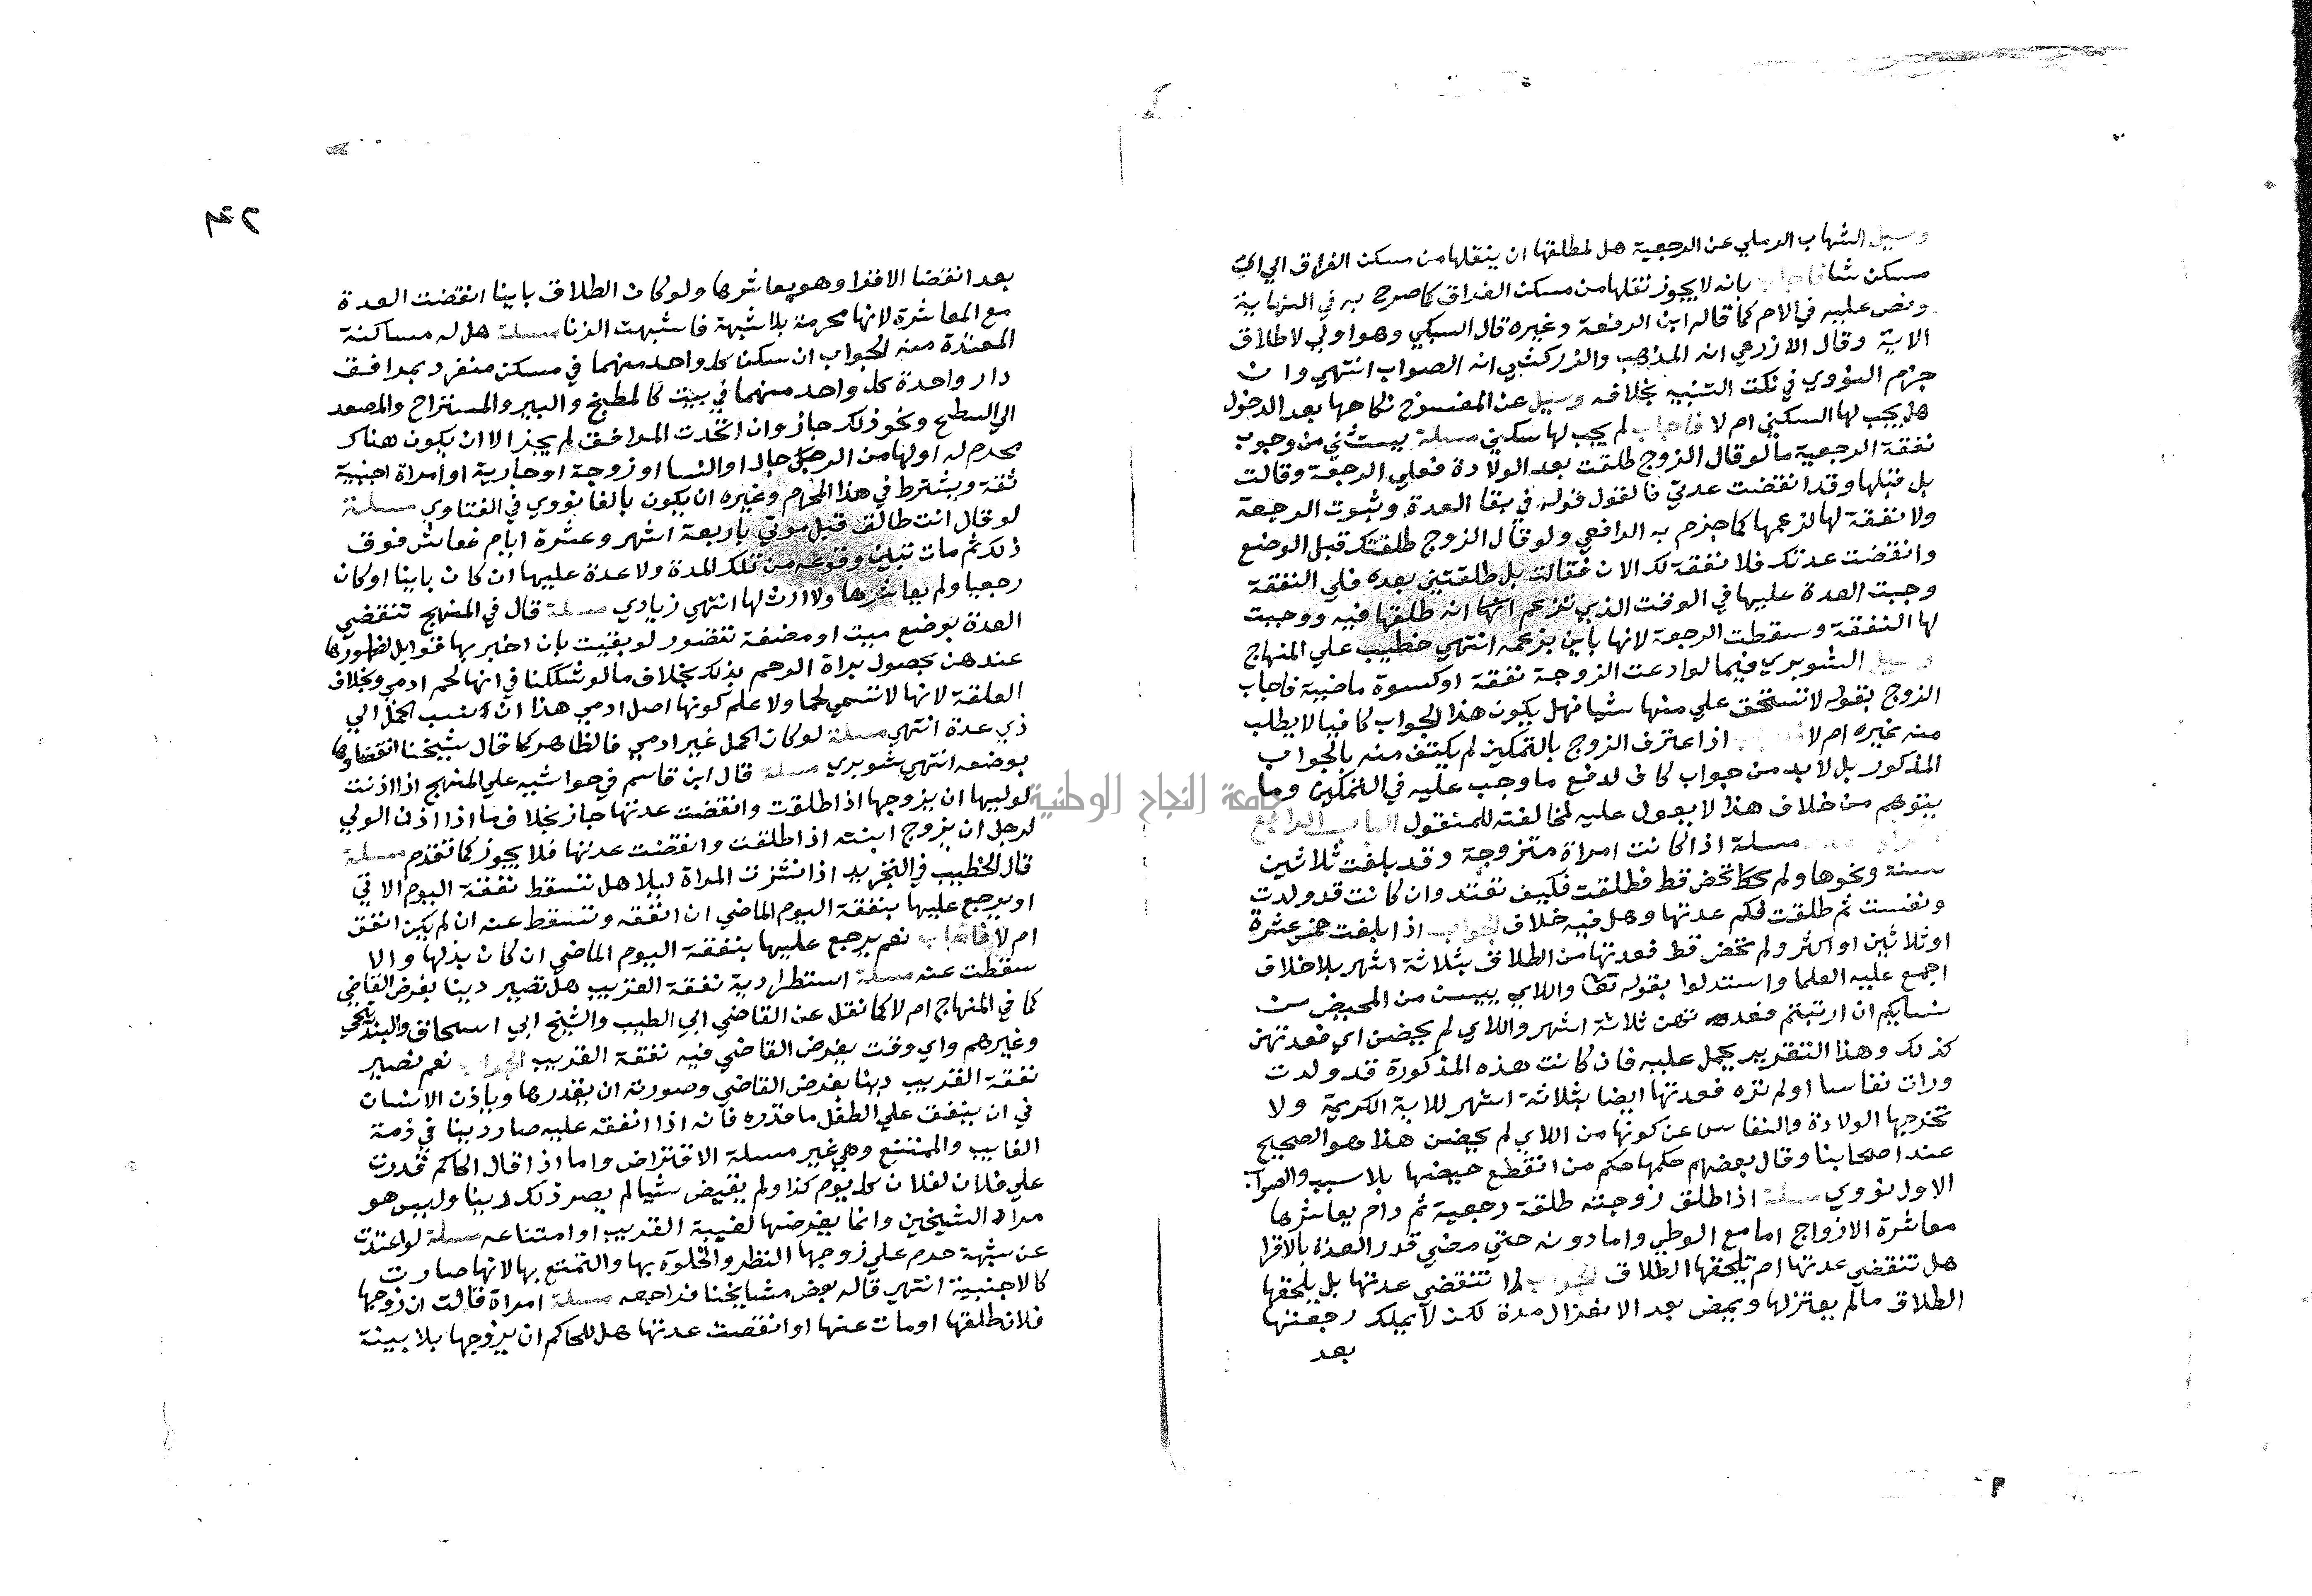 وسيل الشهاب الرملي عن الرجعية هل لمطلقها ان ينقلها من مسكن الفراق الي اي
مسكن شا فاجاب بانه لا يجوز نقلها من مسكن الفراق كما صرح به في النهاية
ونص عليه في الام كما قاله ابن الرفعة وغيره قال السبكي وهو اولي لاطلاق
الاية وقال الاذرعي انه المذهب والزركشي انه الصواب انتهي وان
جزم النووي في نكت التنبيه بخلافه وسيل عن المفسوخ نكاحها بعد الدخول
هل يجب لها السكني ام لا فاجاب لم يجب لها سكني مسلة يستثني من وجوب
نفقة الرجعية ما لو قال الزوج طلقت بعد الولادة فعلي الرجعة وقالت
بل قبلها وقد انقضت عدتي فالقول قوله في بقا العدة وثبوت الرجعة
ولا نفقة لها لزعمها كما جزم به الرافعي ولو قال الزوج طلقتك قبل الوضع
وانقضت عدتك فلا نفقة لك الان فقالت بل طلقتني بعده فلي النفقة
وجبت العدة عليها في الوقت الذي تزعم انها انه طلقها فيه ووجبت
لها النفقة وسقطت الرجعة لانها باين بزعمه انتهي خطيب علي المنهاج
وسيل الشوبري فيما لو ادعت الزوجة نفقة او كسوة ماضية فاجاب
الزوج بقوله لا تستحق علي منها شيا فهل يكون هذا الجواب كافيا لا يطلب
منه غيره ام لا اذا اعترف الزوج بالتمكين لم يكتف منه بالجواب
المذكور بل لا بد من جواب كاف لدفع ما وجب عليه في التمكين وما
يتوهم من خلاف هذا لا يعول عليه لمخالفته للمنقول الباب الرابع
مسلة اذا كانت امراة متزوجة وقد بلغت ثلاثين
سنة ونحوها ولم تحض قط فطلقت فكيف تعتد وان كانت قد ولدت
ونفست ثم طلقت فكم عدتها وهل فيه خلاف الجواب اذا بلغت خمس عشرة
او ثلاثين او اكثر ولم تحض قط فعدتها من الطلاق بثلاثة اشهر بلا خلاف
اجمع عليه العلما واستدلوا بقوله تعا واللاي يئسن من المحيض من
نسايكم ان ارتبتم فعدتهن ثلاثة اشهر واللاي لم يحضن اي فعدتهن
كذلك وهذا التقرير يحمل عليه فان كانت هذه المذكورة قد ولدت
ورات نفاسا او لم تره فعدتها ايضا بثلاثة اشهر للاية الكريمة ولا
تخرجها الولادة والنفاس عن كونها من اللاي لم يحضن هذا هو الصحيح
عند اصحابنا وقال بعضهم حكمها حكم من انقطع حيضها بلا سبب والصواب
الاول نووي مسلة اذا طلق زوجته طلقة رجعية ثم دام يعاشرها
معاشرة الازواج اما مع الوطي واما دونه حتي مضي قدر العدة بالاقرا
هل تنقضي عدتها ام يلحقها الطلاق الجواب لا تنقضي عدتها بل يلحقها
الطلاق ما لم يعتزلها ويمض بعد الاعتزال مدة لكن لا يملك رجعتها
بعد
بعد انقضا الاقرا وهو يعاشرها ولو كان الطلاق باينا انقضت العدة
مع المعاشرة لانها محرمة بلا شبهة فاشبهت الزنا مسلة هل له مساكنة
المعتدة منه الجواب ان سكن كل واحد منهما في مسكن منفرد بمرافق
دار واحدة كل واحد منهما في بيت كالمطبخ والبير والمستراح والمصعد
الي السطح ونحو ذلك جاز وان اتحدت المرافق لم يجز الا ان يكون هناك
محرم له او لها من الرجال او النسا او زوجة او جارية او امراة اجنبية
ثقة ويشترط في هذا المحرم وغيره ان يكون بالغا نووي في الفتاوي مسلة
لو قال انت طالق قبل موتي باربعة اشهر وعشرة ايام فعاش فوق
ذلك ثم مات تبين وقوعه من تلك المدة ولا عدة عليها ان كان باينا او كان
رجعيا ولم يعاشرها ولا ارث لها انتهي زيادي مسلة قال في المنهج تنقضي
العدة بوضع ميت او مضغة تتصور لو بقيت بان اخبر بها قوابل لظهورها
عندهن بحصول براة الرحم بذلك بخلاف ما لو شككنا في انها لحم ادمي وبخلاف
العلقة لانها لا تسمي لحما ولا علم كونها اصل ادمي هذا ان نسب الحمل الي
ذي عدة انتهي مسلة لو كان الحمل غير ادمي فالظاهر كما قال شيخنا انقضاوها
بوضعه انتهي شوبري مسلة قال ابن قاسم في حواشيه علي المنهج اذا اذنت
لوليها ان يزوجها اذا طلقت وانقضت عدتها جاز بخلاف ما اذا اذن الولي
لرجل ان يزوج ابنته اذا طلقت وانقضت عدتها فلا يجوز كما تقدم مسلة
قال الخطيب في التجريد اذا نشزت المراة ليلا هل تسقط نفقة اليوم الاتي
او يرجع عليها بنفقة اليوم الماضي ان انفقه وتسقط عنه ان لم يكن انفق
ام لا فاجاب نعم يرجع عليها بنفقة اليوم الماضي ان كان بذلها والا
سقطت عنه مسلة استطرادية نفقة القريب هل تصير دينا بفرض القاضي
كما في المنهاج ام لا كما نقل عن القاضي ابي الطيب والشيخ ابي اسحاق والبندنيجي
وغيرهم واي وقت يفرض القاضي فيه نفقة القريب الجواب نعم تصير
نفقة القريب دينا بفرض القاضي وصورته ان يقدرها وياذن الانسان
في ان ينفق علي الطفل ما قدره فانه اذا انفقه عليه صار دينا في ذمة
الغايب والممتنع وهي غير مسلة الاقتراض واما اذا قال الحاكم قدرت
علي فلان لفلان كل يوم كذا ولم يقبض شيا لم يصر ذلك دينا وليس هو
مراد الشيخين وانما يفرضها لغيبة القريب او امتناعه مسلة لو اعتدت
عن شبهة حرم علي زوجها النظر والخلوة بها والتمتع بها لانها صارت
كالاجنبية انتهي قاله بعض مشايخنا فراجعه مسلة امراة قالت ان زوجها
فلان طلقها او مات عنها او انقضت عدتها هل للحاكم ان يزوجها بلا بينة
جامعة النجاح الوطنية